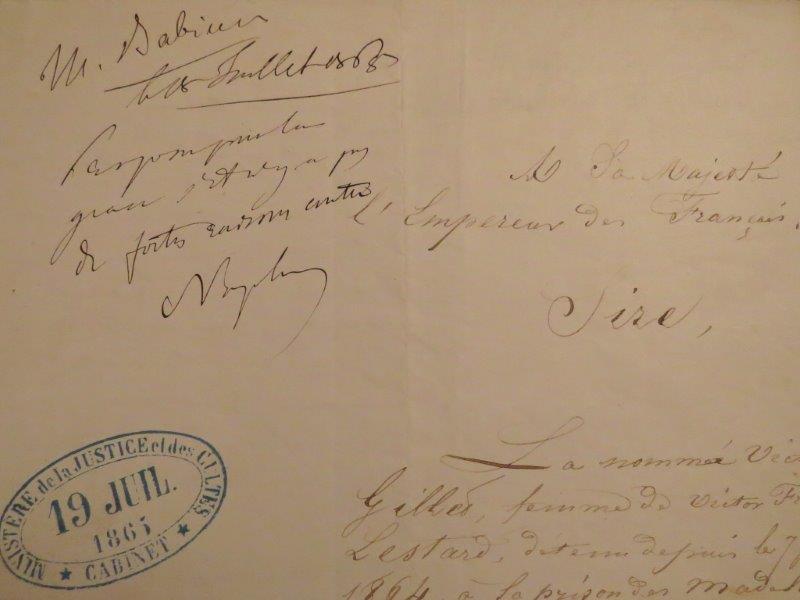 M. Babinet
le 18 Juillet 1865
grace s'il n'y a pas
de fortes raisons contre
Napoléon
A Sa Majesté
l'Empereur des Français.
Sire,
La nommée Vic
Gilles, femme de Victor F
Lestard, détenu depuis le 7
1864, à la prison des Madel
MINISTERE de la JUSTICE et des CULTES
19 JUIL.
1865
CABINET